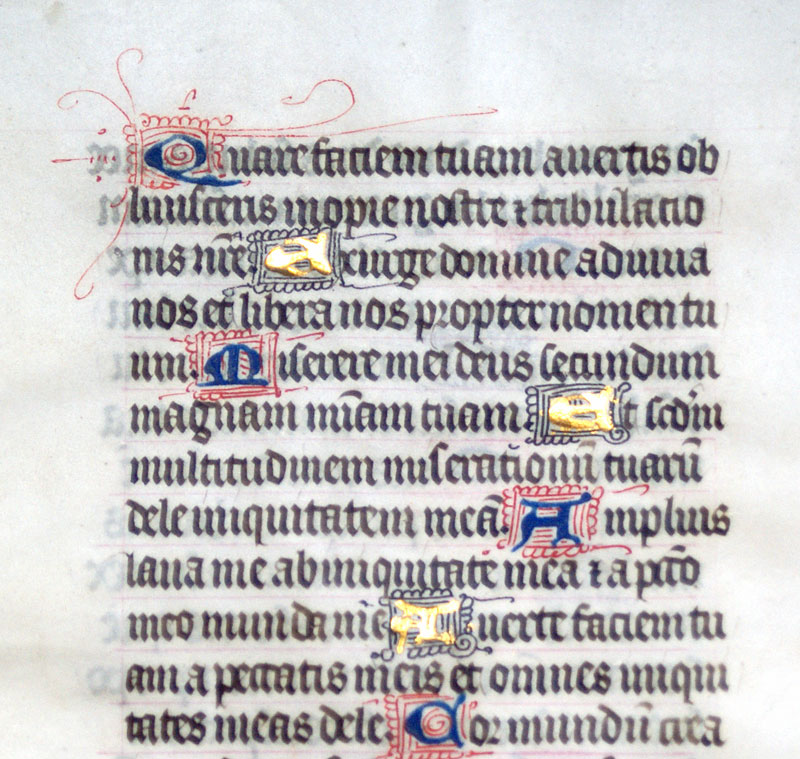 Quare faciem tuam avertis ob
liuisceris inopie nostre ⁊ tribulacio
nis nr̄e. Exurge domine adiuua
nos et libera nos propter nomen tu
um. Miserere mei deus secundum
magnam mīam tuam. Et scdm̄
multitudinem miserationū tuarū
dele iniquitatem meā. Amplius
laua me ab iniquitate mea ⁊ a pctō
meo munda me. Auerte faciem tu
am a peccatis meis et omnes iniqui
tates meas dele. Cor mundū crea